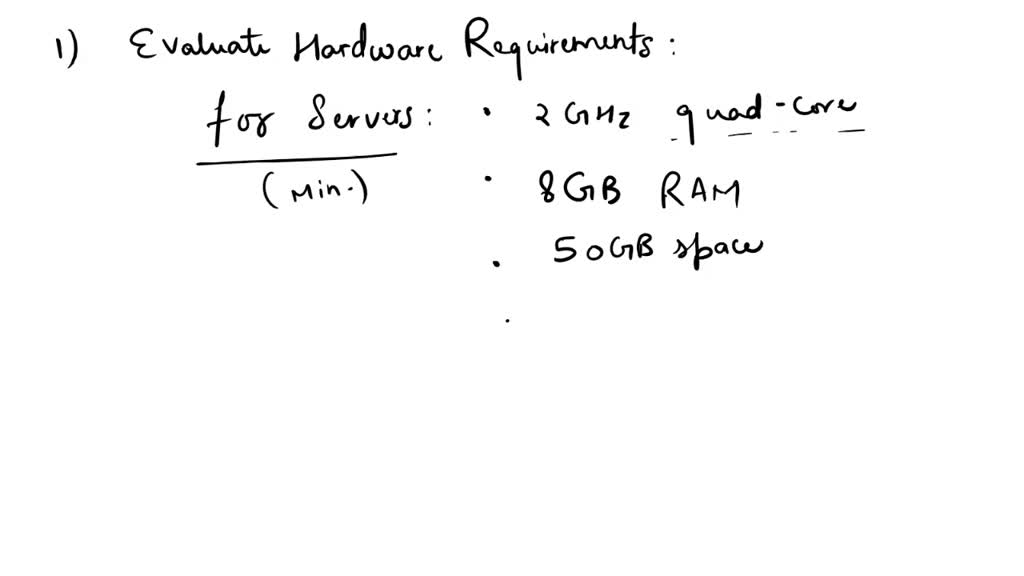 1) Evaluate Hardware Requirements:
for Servers: • 2 GHz quad-core
(Min.) • 8GB RAM
• 50GB space
•